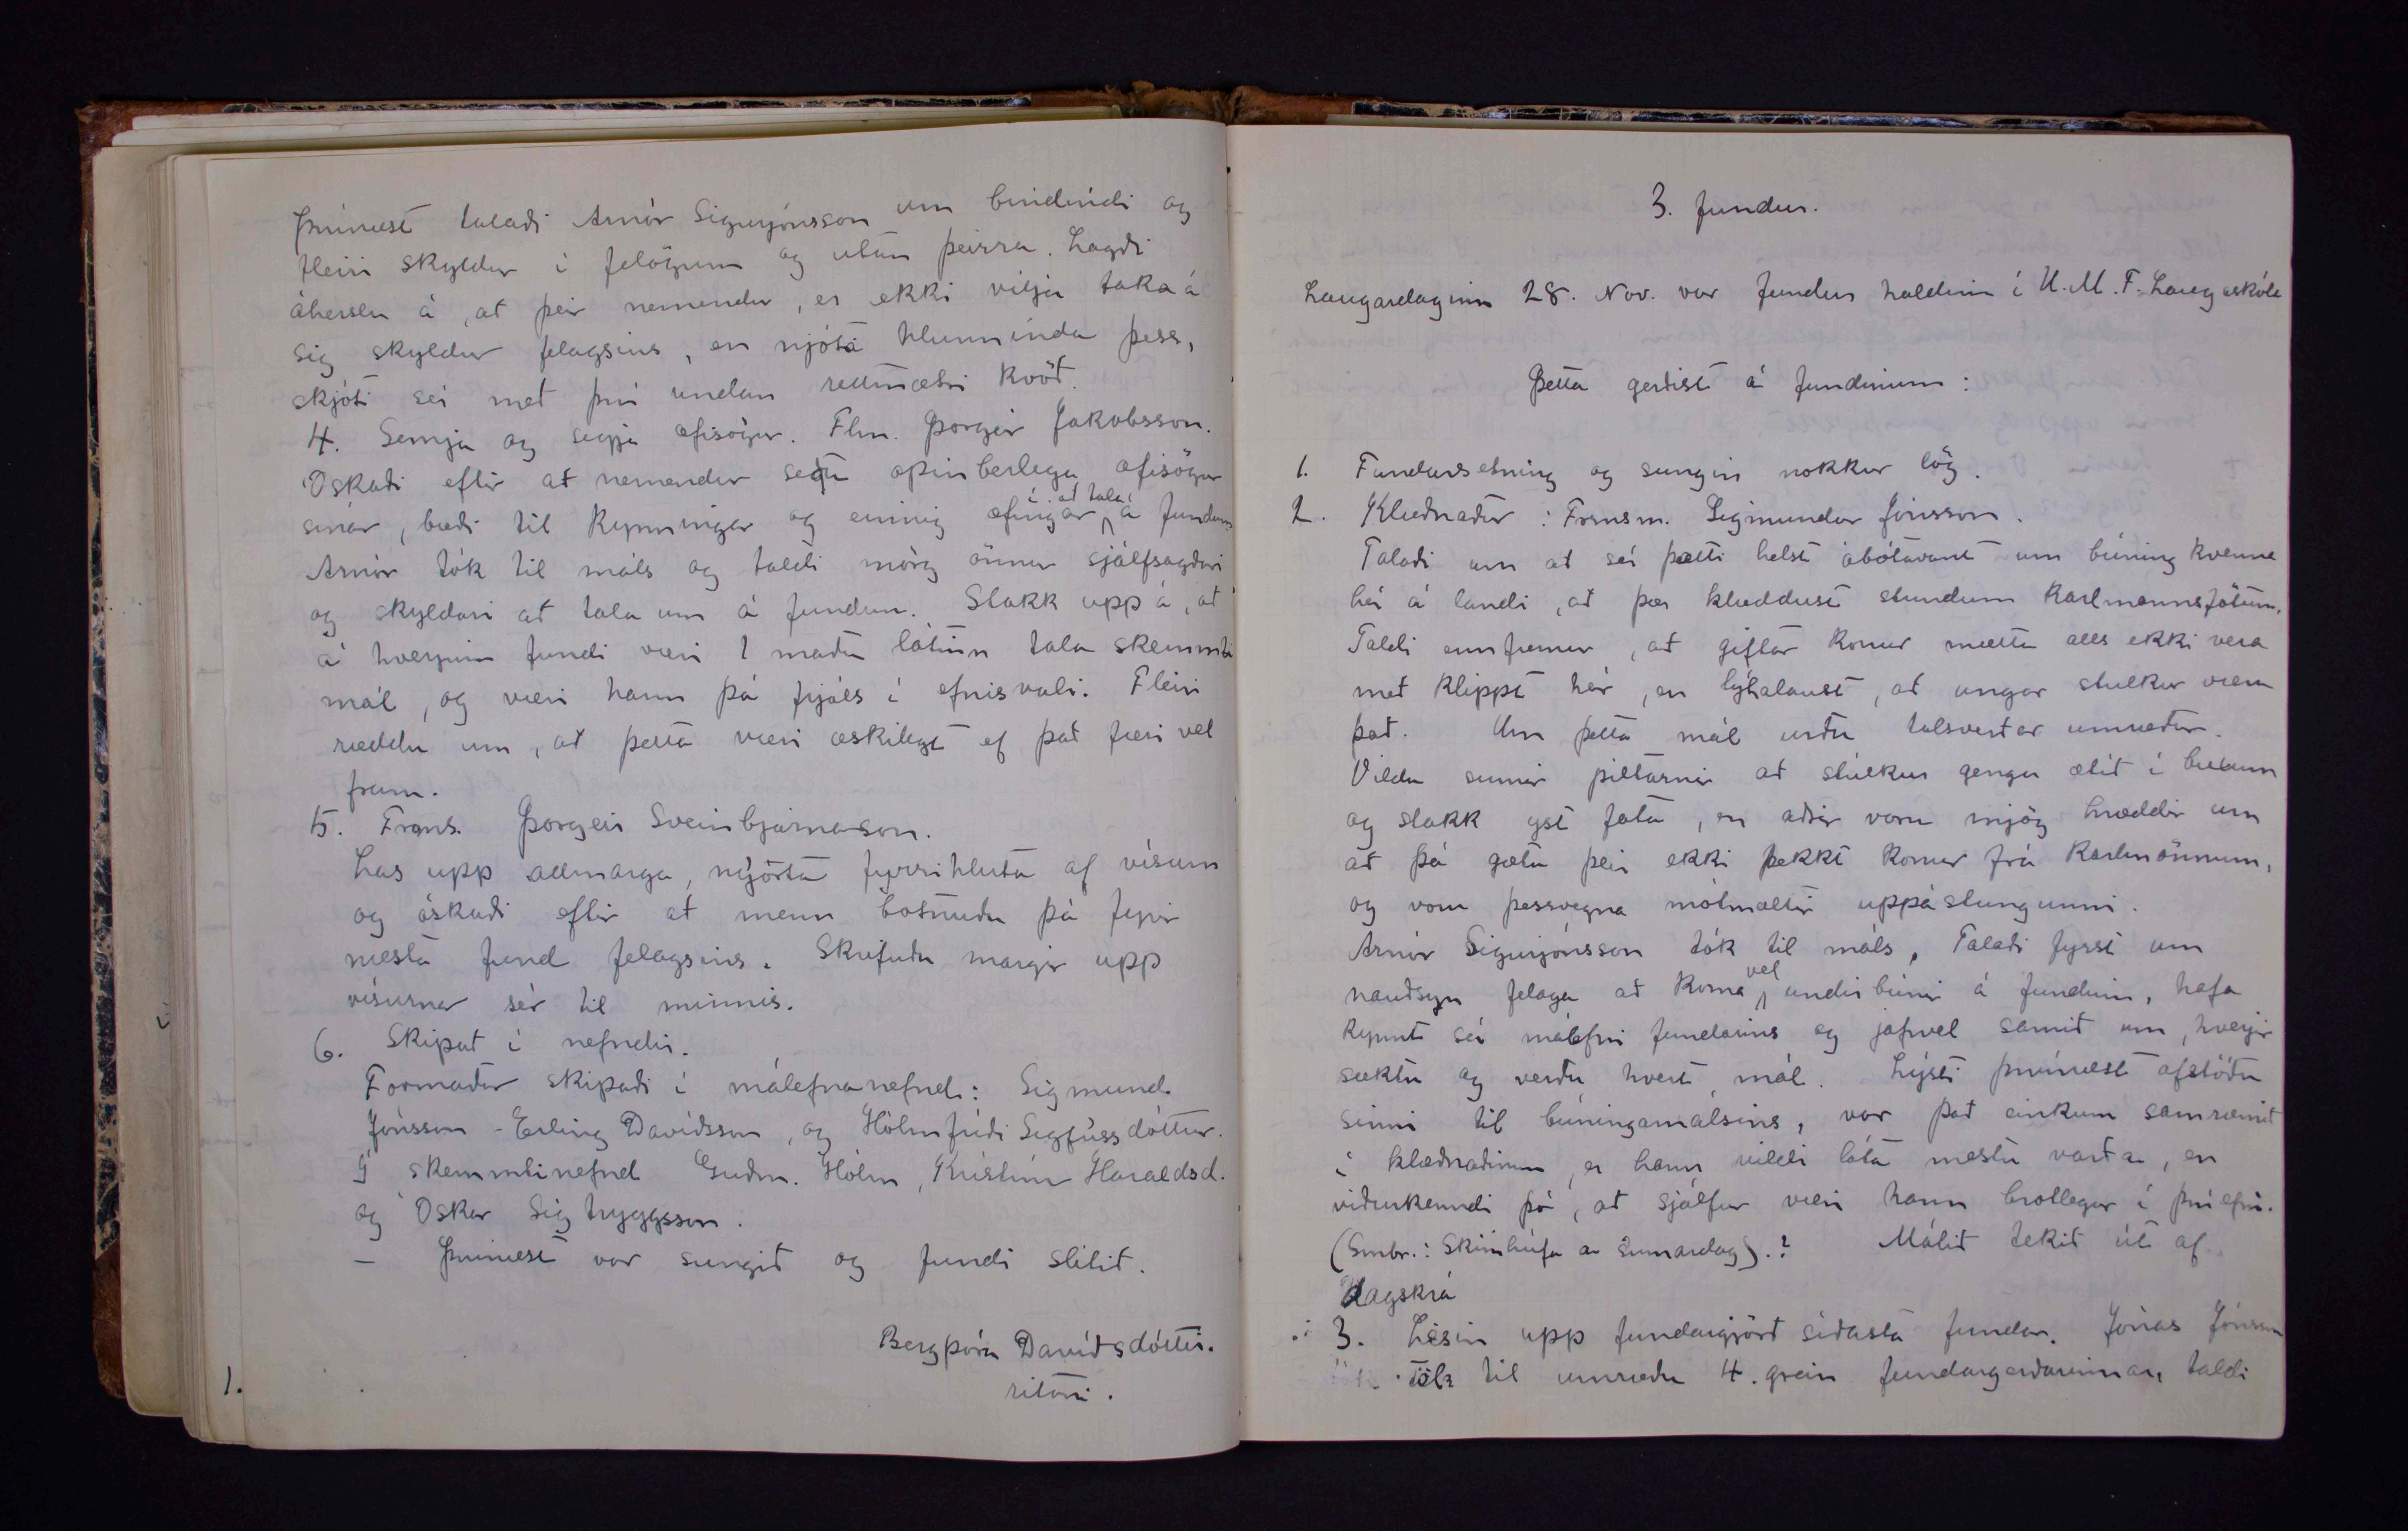 Þvínæst talaði Arnór Sigurjónsson um bindindi og
fleiri skyldur í felögum og utan þeirra. Lagði
áherslu á, at þeir nemendur, er ekki vilja taka á
sig skyldur felagsins, en njóta hlunninda þess,
skjóti sér met því undan réttmætri kvöt.
4. Semja og segja æfisögur. Flm. Þorgeir Jakobsson.
Óskaði eftir at nemendur segðu opinberlega æfisögur
sínar, bæði til kynningar og einnig æfingar í at tala á fundum
Arnór tók til máls og taldi mörg önnur sjálfsagðari
og skyldari at tala um á fundum. Stakk upp á, at
á hverjum fundi væri 1 maður látinn tala skemmti
mál, og væri hann þá frjáls í efnisvali. Fleiri
ræddu um, at þetta væri æskilegt ef þat færi vel
fram.
5. Frms. Þorgeir Sveinbjarnason.
Las upp allmarga, nýorta fyrrihluta af vísum
og óskaði eftir at menn botnuðu þá fyrir
næsta fund felagsins. Skrifuðu margir upp
vísurnar sér til minnis.
6. Skipat í nefndir.
Formaður skipaði í málefnanefnd: Sigmund
Jónsson - Erling Davíðsson, og Hólmfríði Sigfússdóttur.
Í skemmtinefnd Guðm. Hólm, Kristínu Haraldsd.
og Óskar Sigtryggsson.
- Þvínæst var sungit og fundi slitit.
Bergþóra Davíðsdóttir.
ritari.
1.
3. fundur.
Laugardaginn 28. Nov. var fundur haldinn í U.M.F. Laugaskóla
Þetta gerðist á fundinum:
1. Fundarsetning og sungin nokkur lög.
2. Klæðnaður: Frmsm. Sigmundur Jónsson.
Talaði um at sér þætti helst ábótavant um búning kvenna
hér á landi, at þær klæddust stundum karlmannsfötum.
Taldi ennfremur, at giftar konur mættu alls ekki vera
met klippt hár, en lýtalaust, at ungar stúlkur væru
þat. Um þetta mál urðu talsverðar umræður.
Vildu sumir piltarnir at stúlkur gengu ætít í buxum
og stakk yst fata, en aðrir voru mjög hræddir um
at þá gætu þeir ekki þekkt konur frá karlmönnum,
og voru þessvegna mótmæltir uppástungunni.
Arnór Sigurjónsson tók til máls. Talaði fyrst um
nauðsyn felaga at koma vel undirbúnir á fundinn, hafa
kynnt sér málefni fundarins og jafnvel samit um, hverjir
sæktu og verðu hvert mál. Lýsti þvínæst afstöðu
sinni til búningamálsins, var þat einkum samræmit
í klæðnaðinum, er hann vildi láta mestu varða, en
viðurkenndi þó, at sjálfur væri hann brotlegur í því efni.
(Smbr.: Skinnhúfa á sumardag).? Málit tekit út af
dagskrá
3. Lesin upp fundargjörð síðasta fundar. Jónas Jónsson
Tók til umræðu 4. grein fundargerðarinnar, taldi